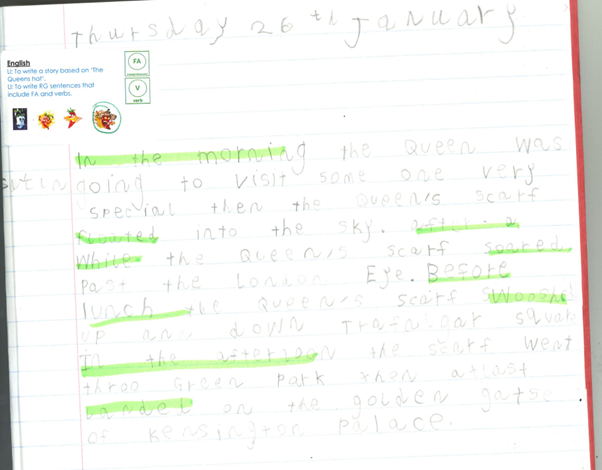 Thursday 26th January
English
LI: To write a story based on 'The
Queens hat'.
LI: To write RG sentences that
include FA and verbs.
FA
V
verb
In the morning the Queen was
going to visit some one very
special then the Queen's scarf
floated into the sky. after a
While the Queen's scarf soared
Past the London Eye. Before
lunch the Queen's scarf swooshe
up and down Trafalgar squar
In the afternoon the scarf went
throo Green Park then atlast
Landed on the golden gatse
of Kensington palace.